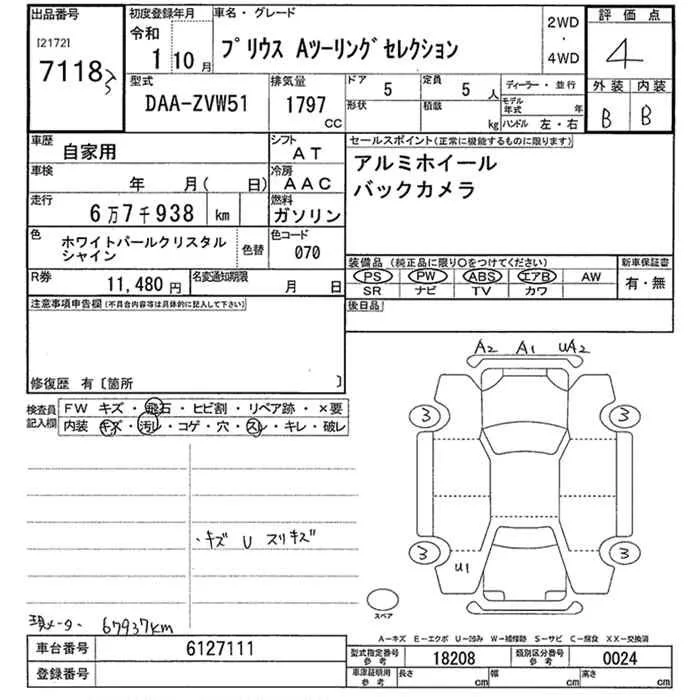 出品番号
[2172]
7118
初度登録年月
令和
1 10月
車名・グレード
プリウス Aツーリングセレクション
2WD
・
4WD
評価点
4
外装 内装
B B
型式
DAA-ZVW51
排気量
1797
CC
ドア 5
定員 5 人
形状
積載 kg
ディーラー・並行
モデル年式 年
ハンドル 左・右
車歴 自家用
シフト AT
車検 年 月( 日)
冷房 AAC
走行 6万7千938 km
燃料 ガソリン
色 ホワイトパールクリスタル
シャイン
色替
色コード 070
R券 11,480円
名変通知期限 月 日
セールスポイント(正常に機能するものに限ります)
アルミホイール
バックカメラ
装備品(純正品に限り○をつけてください)
新車保証書
PS PW ABS エアB AW
SR ナビ TV カワ
有・無
注意事項申告欄(不具合内容等は具体的に記入して下さい)
後日品
修復歴 有〔箇所 〕
検査員
記入欄
FW キズ・飛石・ヒビ割・リペア跡・×要
内装 キズ・汚レ・コゲ・穴・スレ・キレ・破レ
A2 A1 UA2
3 3
3 3
U1
・キズ U スリキズ
スペア
現メーター 67937km
A-キズ E-エクボ U-凹み W-補修跡 S-サビ C-腐食 XX-交換済
車台番号 6127111
登録番号
型式指定番号
参考
18208
類別区分番号
参考
0024
車庫証明用
参考
長さ cm
幅 cm
高さ cm